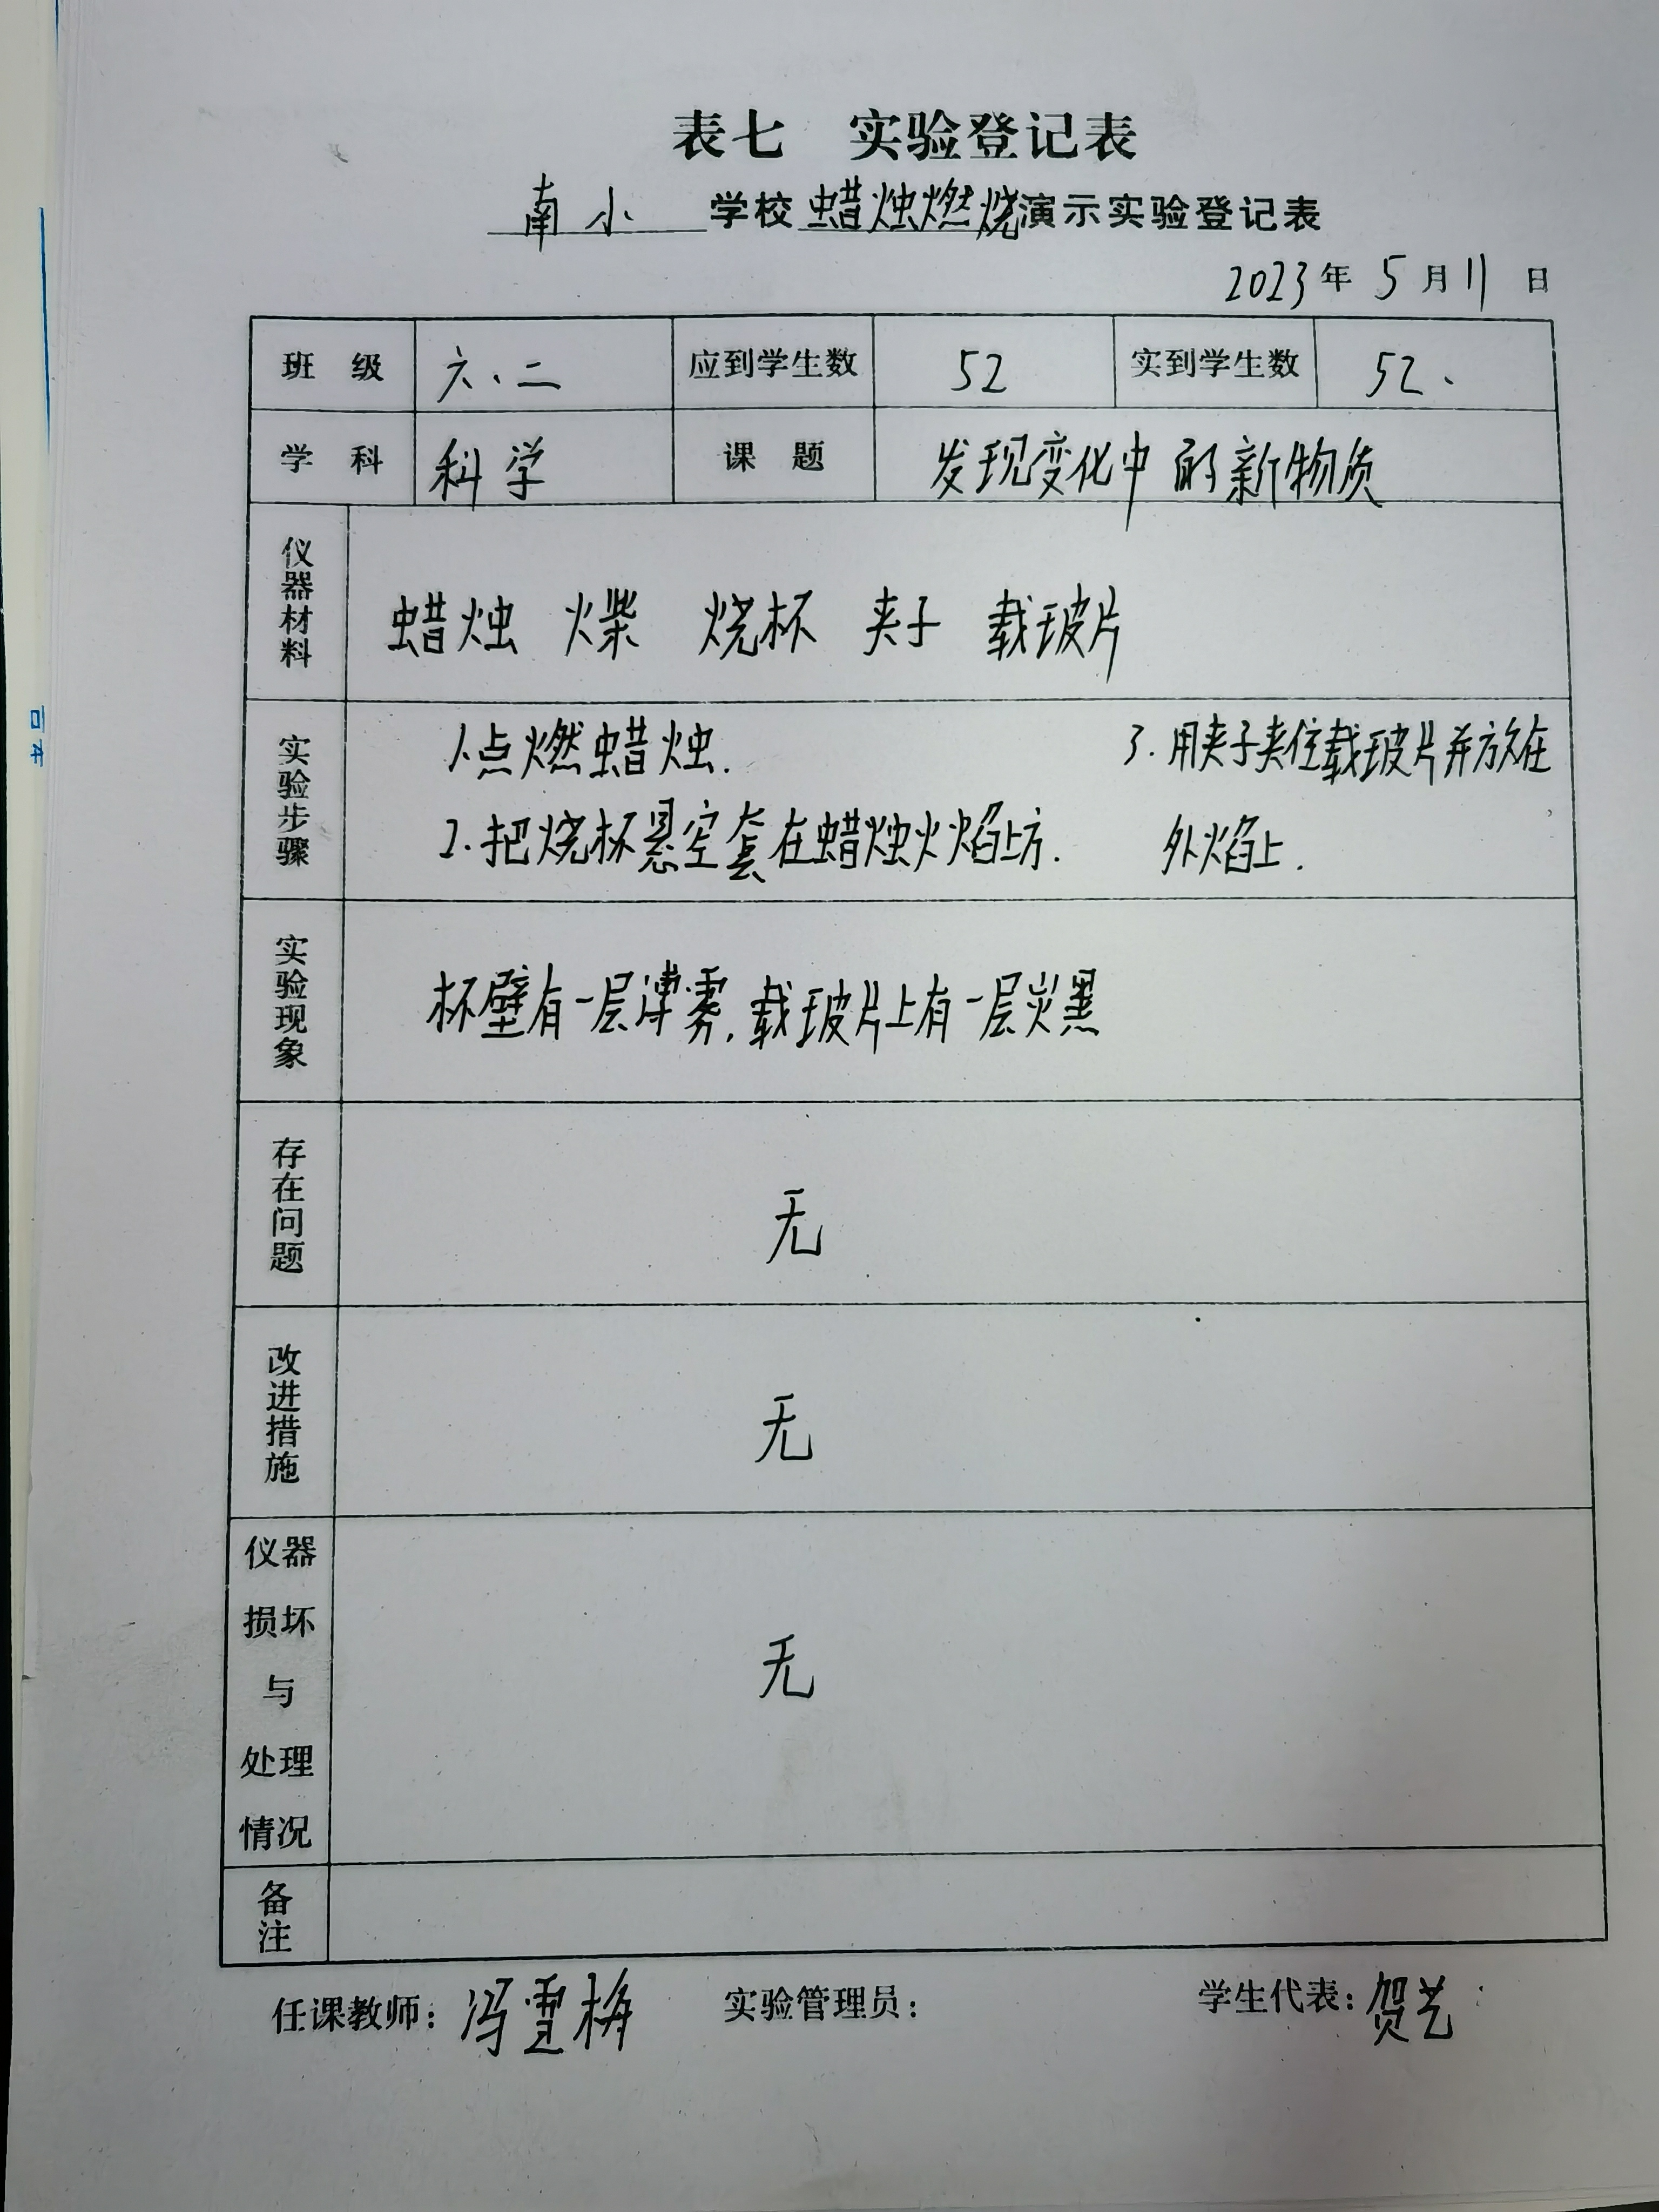 表七 实验登记表
南小 学校 蜡烛燃烧 演示实验登记表
2023年5月11日
班级 六、二 应到学生数 52 实到学生数 52、
学科 科学 课题 发现变化中的新物质
仪器材料 蜡烛 火柴 烧杯 夹子 载玻片
实验步骤
1.点燃蜡烛.
2.把烧杯悬空套在蜡烛火焰上方.
3.用夹子夹住载玻片并放在
外火焰上.
实验现象 杯壁有一层薄雾,载玻片上有一层炭黑
存在问题 无
改进措施 无
仪器损坏与处理情况 无
备注
任课教师:冯雪梅 实验管理员: 学生代表:贺艺